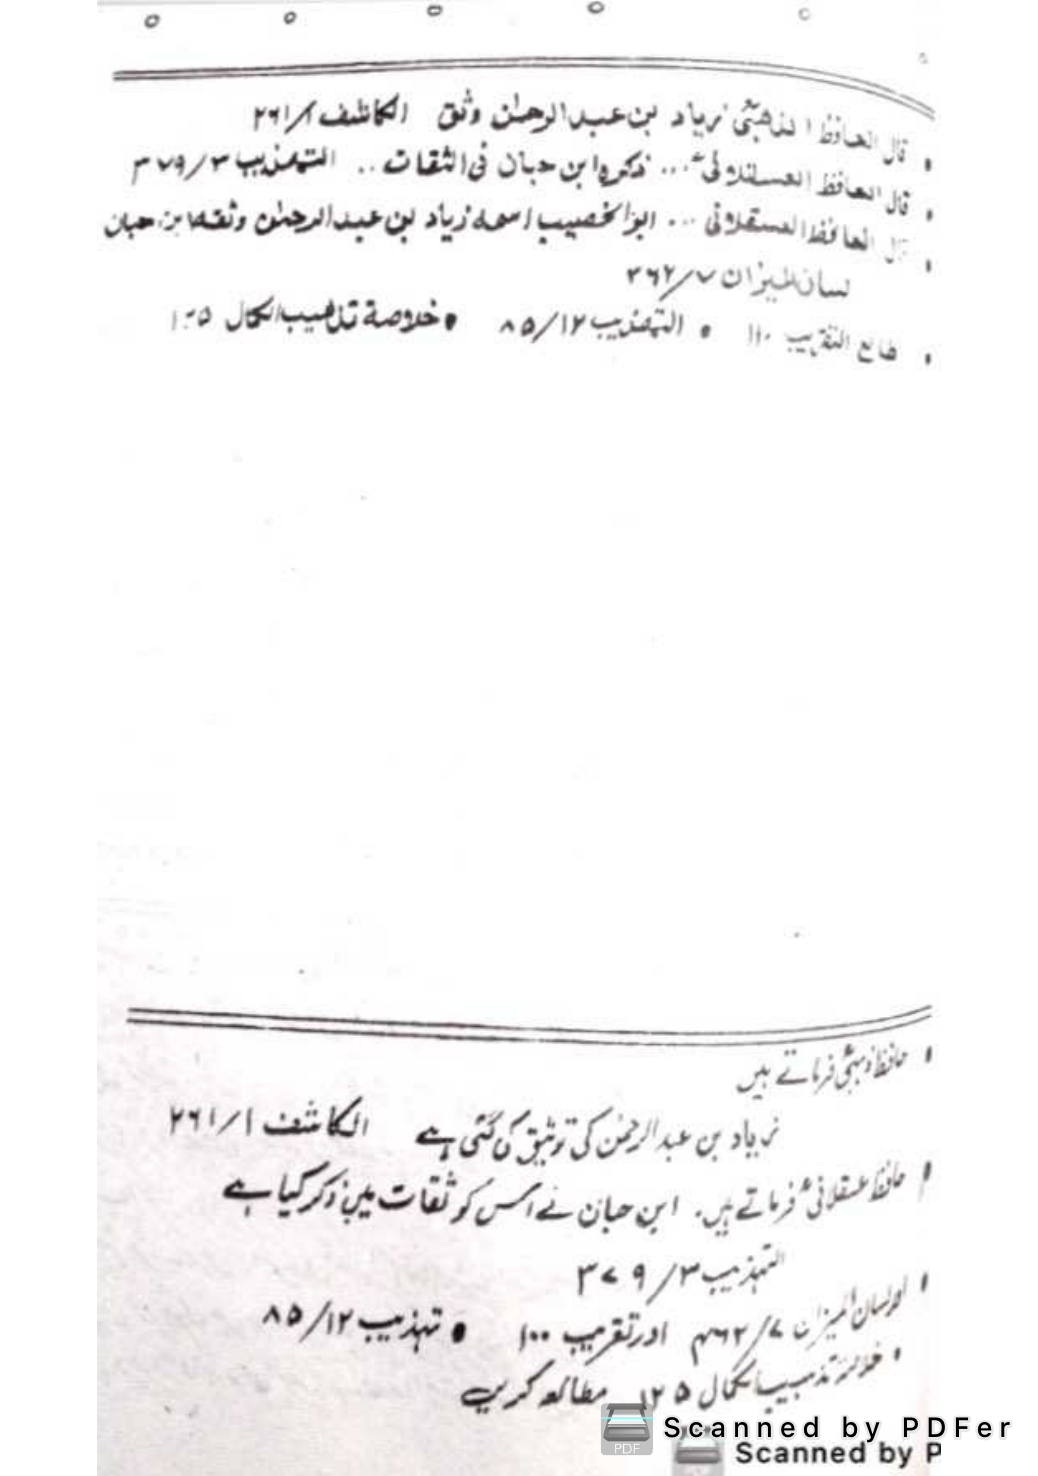 • قال الحافظ الذهبیؒ زیاد بن عبدالرحمٰن وثق الکاشف ۱/۲۶۱
• قال الحافظ العسقلانیؒ ... ذکرہ ابن حبان فی الثقات .. التھذیب ۳/۳۷۹
• قال الحافظ العسقلانی ... ابوالخصیب اسمہ زیاد بن عبدالرحمٰن وثقہ ابن حبان
لسان المیزان ۷/
• طالع التقریب • التھذیب ۱۲/۸۵ • خلاصة تذھیب الکمال
• حافظ ذہبیؒ فرماتے ہیں
زیاد بن عبدالرحمٰن کی توثیق کی گئی ہے الکاشف ۱/۲۶۱
• حافظ عسقلانیؒ فرماتے ہیں۔ ابن حبان نے اس کو ثقات میں ذکر کیا ہے
التہذیب ۳/۳۷۹
• اور لسان المیزان ۷/ اور تقریب ۱۰۰ • تہذیب ۱۲/۸۵
• خلاصہ تذہیب الکمال ۱۲۵ مطالعہ کریں
PDF
Scanned by PDFer
Scanned by P